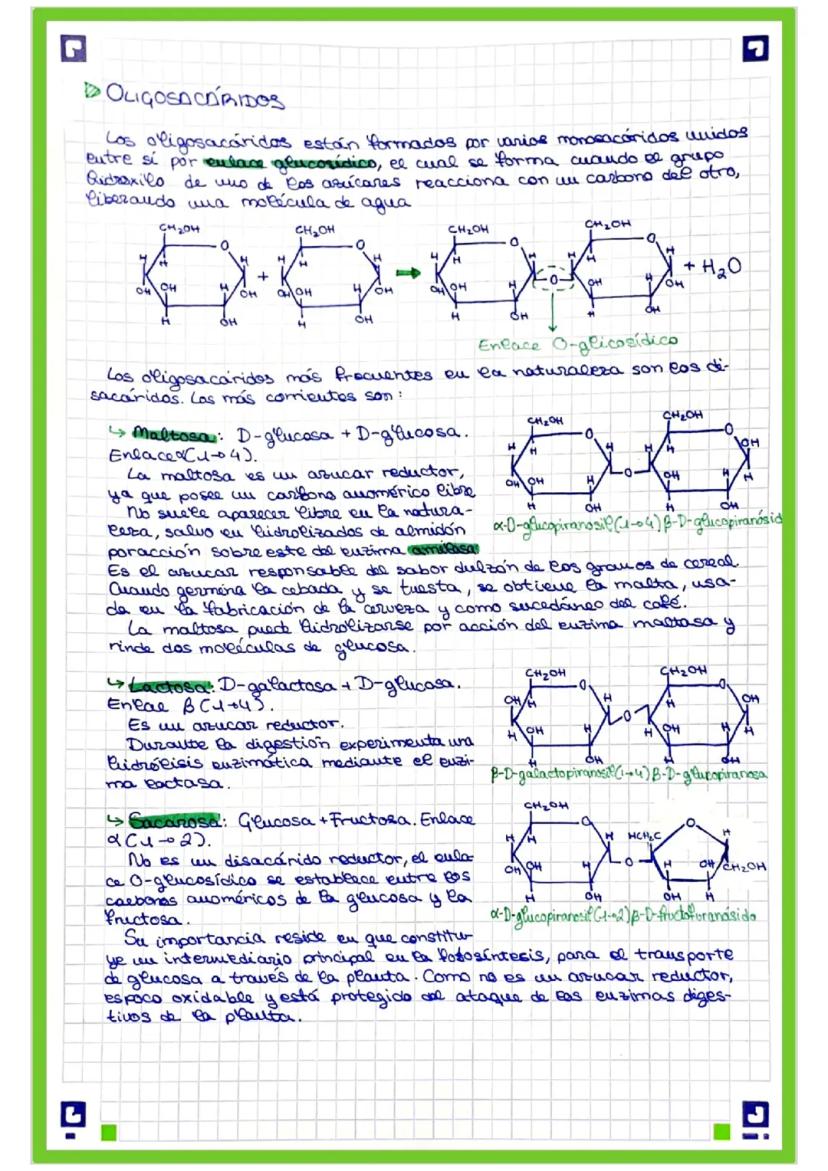 OLIGOSACÁRIDOS
Los oligosacáridos están formados por varios monosacáridos unidos
entre sí por enlace glucosídico, el cual se forma cuando el grupo
hidroxilo de uno de los azúcares reacciona con un carbono del otro,
liberando una molécula de agua
CH₂OH CH₂OH CH₂OH CH₂OH
+ → + H₂O
Enlace O-glicosídico
Los oligosacáridos más frecuentes en la naturaleza son los di-
sacáridos. Los más corrientes son:
↳ Maltosa: D-glucosa + D-glucosa.
Enlace α(1→4).
La maltosa es un azucar reductor,
ya que posee un carbono anomérico libre
No suele aparecer libre en la natura-
leza, salvo en hidrolizados de almidón
poracción sobre este del enzima amilasa
CH₂OH CH₂OH
α-D-glucopiranosil(1→4)β-D-glucopiranósid
Es el azucar responsable del sabor dulzón de los granos de cereal.
Cuando germina la cebada y se tuesta, se obtiene la malta, usa-
da en la fabricación de la cerveza y como sucedáneo del café.
La maltosa puede hidrolizarse por acción del enzima maltasa y
rinde dos moléculas de glucosa.
↳ Lactosa: D-galactosa + D-glucosa.
Enlae β(1→4).
Es un azucar reductor.
Durante la digestión experimenta una
hidrólisis enzimática mediante el enzi-
ma lactasa.
CH₂OH CH₂OH
β-D-galactopiranosil(1→4)β-D-glucopiranosa
↳ Sacarosa: Glucosa + Fructosa. Enlace
α(1→2).
No es un disacárido reductor, el enla-
ce O-glucosídico se establece entre los
carbonos anoméricos de la glucosa y la
fructosa.
CH₂OH
HCH₂C
CH₂OH
α-D-glucopiranosil(1→2)β-D-fructofuranósido
Su importancia reside en que constitu-
ye un intermediario principal en la fotosíntesis, para el transporte
de glucosa a través de la planta. Como no es un azucar reductor,
es poco oxidable y está protegido del ataque de las enzimas diges-
tivos de la planta.